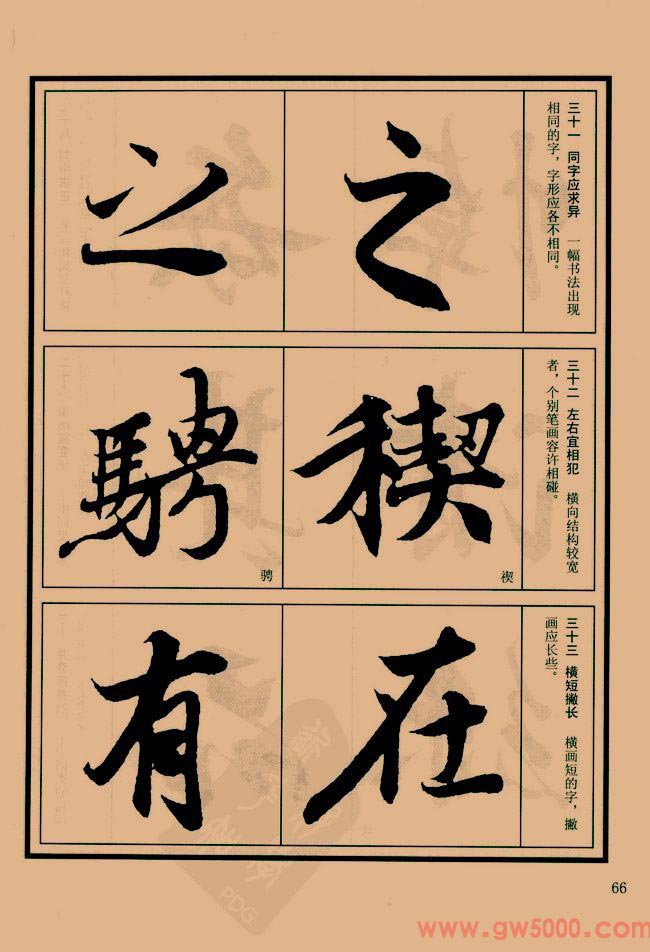 三十一 同字应求异 一幅书法出现
相同的字，字形应各不相同。
之
之
三十二 左右宜相犯 横向结构较宽
者，个别笔画容许相碰。
禊
禊
騁
骋
三十三 横短撇长 横画短的字，撇
画应长些。
在
有
PDG
66
www.gw5000.com